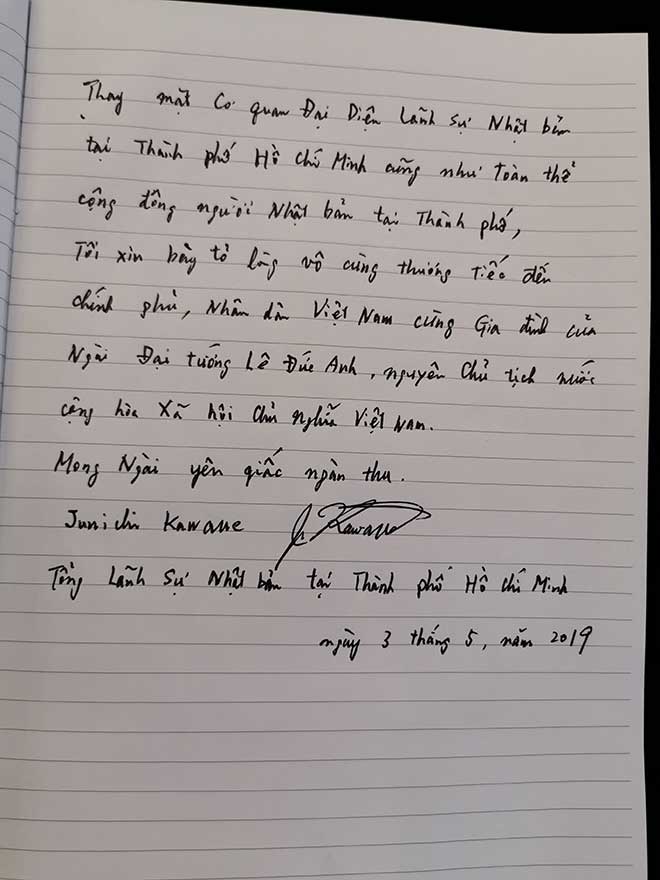 Thay mặt Cơ quan Đại Diện Lãnh Sự Nhật bản
tại Thành phố Hồ Chí Minh cũng như Toàn thể
cộng đồng người Nhật bản tại Thành phố,
Tôi xin bày tỏ lòng vô cùng thương tiếc đến
chính phủ, Nhân dân Việt Nam cùng Gia đình của
Ngài Đại tướng Lê Đức Anh, nguyên Chủ tịch nước
cộng hòa Xã hội Chủ nghĩa Việt Nam.
Mong Ngài yên giấc ngàn thu.
Junichi Kawaue J. Kawaue
Tổng Lãnh Sự Nhật bản tại Thành phố Hồ Chí Minh
ngày 3 tháng 5, năm 2019